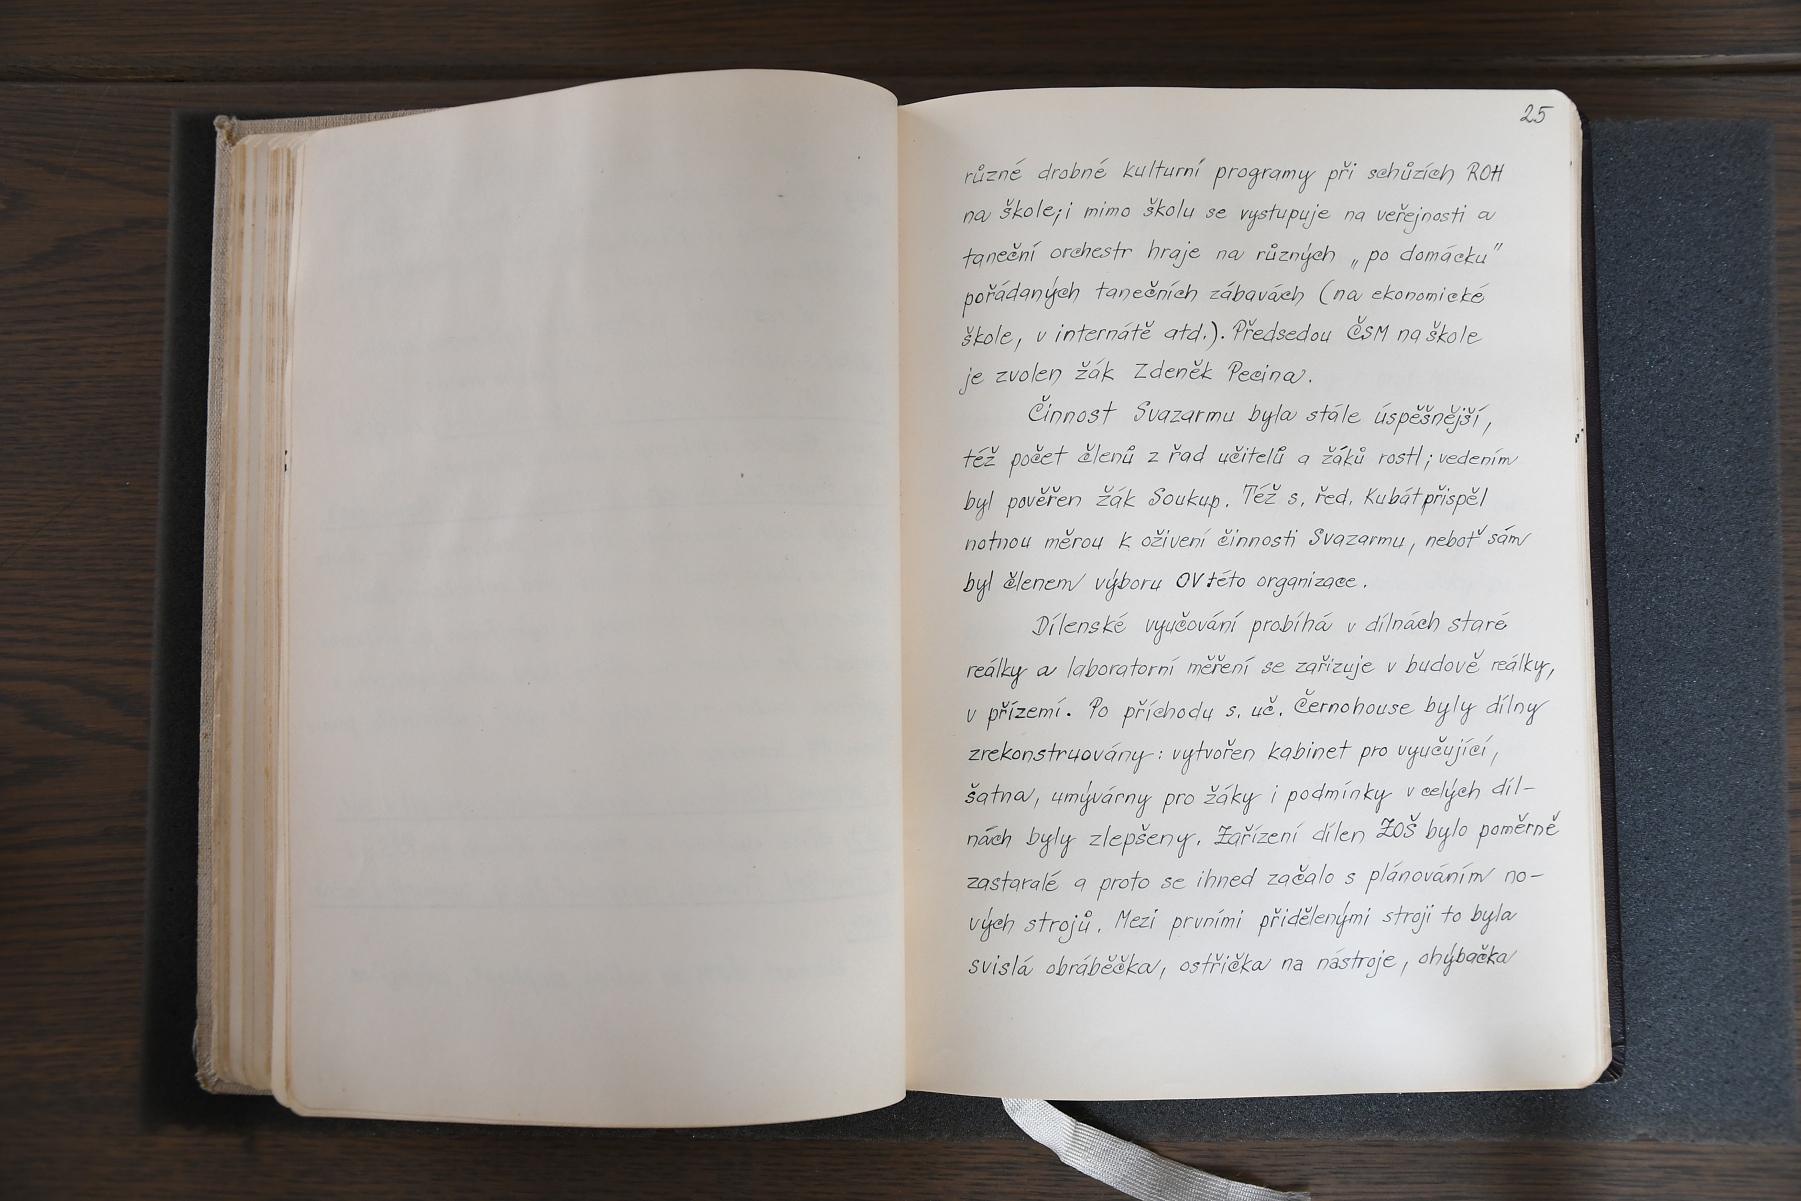 25
různé drobné kulturní programy při schůzích ROH
na škole; i mimo školu se vystupuje na veřejnosti a
taneční orchestr hraje na různých „po domácku"
pořádaných tanečních zábavách (na ekonomické
škole, v internátě atd.). Předsedou ČSM na škole
je zvolen žák Zdeněk Pecina.
Činnost Svazarmu byla stále úspěšnější,
též počet členů z řad učitelů a žáků rostl; vedením
byl pověřen žák Soukup. Též s. řed. Kubát přispěl
notnou měrou k oživení činnosti Svazarmu, neboť sám
byl členem výboru OV této organizace.
Dílenské vyučování probíhá v dílnách staré
reálky a laboratorní měření se zařizuje v budově reálky,
v přízemí. Po příchodu s. uč. Černohouse byly dílny
zrekonstruovány: vytvořen kabinet pro vyučující,
šatna, umývárny pro žáky i podmínky v celých díl-
nách byly zlepšeny. Zařízení dílen ZOŠ bylo poměrně
zastaralé a proto se ihned začalo s plánováním no-
vých strojů. Mezi prvními přidělenými stroji to byla
svislá obráběčka, ostřička na nástroje, ohýbačka